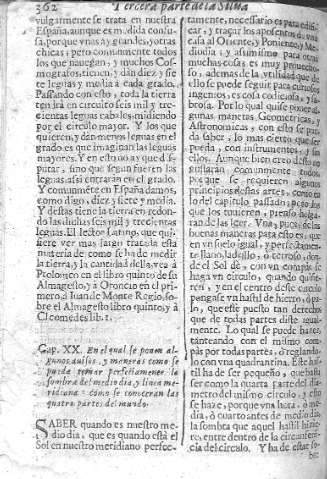 362 Tercera parte de la Silua
vulgarmente se trata en nuestra
España, aunque es medida confu-
sa, porque vnas ay grandes, y otras
chicas; pero comunmente todos
los que nauegan, y muchos Cos-
mografos, tienen, y dan diez y sie
te leguas y media a cada grado.
Passando con esto, toda la tierra
ternà en circuito seis mil y tre-
cientas leguas cabales, midiendo
por el circulo mayor. Y los que
quieren, y dan menos leguas en el
grado es que imaginan las leguas
mayores. Y en esto no ay que dis-
putar, sino que segun fueren las
leguas, assi entraran en el grado.
Y comunmẽte en España damos,
como digo, diez y siete y media.
Y destas tiene la tierra en redon-
do las dichas seis mil y trecientas
leguas. El lector Latino, que qui-
siere ver mas largo tratada esta
materia de como se ha de medir
la tierra, y la cantidad della, vea à
Ptolomeo en el libro quinto, de su
Almagesto, y à Oroncio en el pri-
mero, a Iuan de Monte Regio, so-
bre el Almagesto libro quinto, y à
Cleomedes lib. 1.
Cap. XX. En el qual se ponen al-
gunos auisos, y maneras como se
puede tomar perfectamente la
sombra del medio dia, y linea me-
ridiana: como se conoceran las
quatro partes del mundo.
SABER quando es nuestro me-
dio dia, que es quando està el
Sol en nuestro meridiano perfec-
tamente, necessario es para edifi-
car, y traçar los aposentos de vna
casa al Oriente, y Poniente, y Me-
diodia, y assimismo para otras
muchas cosas es muy prouecho-
so, ademas de la vtilidad que de
ello se puede seguir para curiosos
ingenios, es cosa codiciada, y sa-
brosa. Por lo qual quise poner al-
gunas maneras Geometricas, y
Astronomicas, con esto se pue-
da saber, lo mas cierto que ser
pueda, con instrumentos, y sin
ellos. Aunque bien creo desto no
gustaràn comunmente todos,
porque se requieren algunos
principios destas artes, como en
lo del capitulo passado; pero los
que los tuuieren, pienso holga-
ran de las leer. Vna, pues, de las
buenas maneras para ello es, que
en vn suelo igual, y perfectamen-
te llano, ladrillo, ò otro so, don-
de el Sol dè, con vn compàs se
haga vn circulo, quando quisie-
ren, y en el centro deste circulo
pongase vn hastil de hierro, ò pa-
lo, que estè puesto tan derecho
que de todas partes diste igual-
mente. Lo qual se puede hazer,
tanteando con el mismo com-
pàs por todas partes, ò reglando-
lo con vna quadrantina. Este has-
til ha de ser pequeño, que basta
ser como la quarta parte del dia-
metro del mismo circulo, y esto
se haze, porque vna hora, ò me-
dia, ò quarto antes de medio dia
la sombra que aquel hastil hizie-
re, entre dentro de la circunferẽ-
cia del circulo. Y ha de estar so-